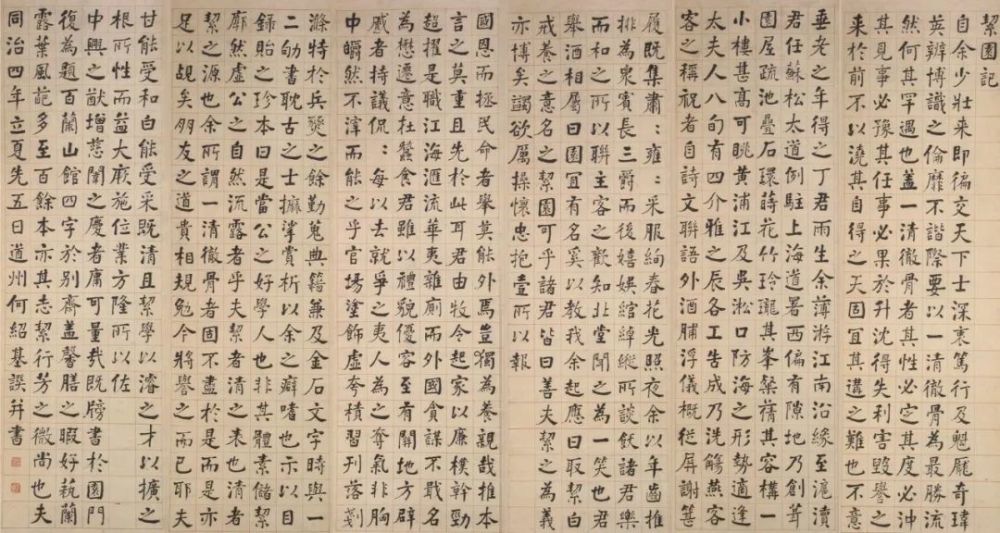 絜園記
自余少壯来即徧交天下士深衷篤行及魁厖奇瑋
英辨博識之倫靡不諧際要以一清徹骨為最勝流
然何其罕遇也盖一清徹骨者其性必定其度必沖
其見事必豫其任事必果於升沈得失利害毀譽之
来於前不以澆其自得之天固宜其遘之難也不意
垂老之年得之丁君雨生余薄游江南沿緣至滬瀆
君任蘇松太道例駐上海道署西偏有隙地乃創葺
園屋疏池疊石環蒔花竹玲瓏其峯粲蒨其容構一
小樓甚高可眺黄浦江及吳淞口防海之形勢適逢
太夫人八旬有四介雅之辰各工告成乃洗觴燕客
客之稱祝者自詩文聯語外酒脯浮儀概從屏謝簉
履既集肅:雍:采服絢春花光照夜余以年齒推
排為衆賓長三爵而後嬉娛綰縪縱所談飫諸君樂
而和之所以聯主客之歡知北堂聞之為一笑也君
舉酒相屬曰園宜有名奚以教我余起應曰取絜白
戒養之意名之絜園可乎諸君皆曰善夫絜之為義
亦博矣謁欲厲操懷忠抱壹所以報
國恩而拯民命者舉莫能外焉豈獨為養親哉推本
言之莫重且先於此耳君由牧令起家以廉樸幹勁
超擢是職江海滙流華夷雜廁而外國食謀不戢名
為懋遷意在蠶食君雖以禮貌優容至有關地方辟
戚者持議侃:每以去就爭之夷人為之奪氣非胸
中皭然不滓而能之乎官場塗飾虛夸積習刊落剗
滌特於兵燹之餘勤蒐典籍兼及金石文字時與一
二劬書耽古之士摩挲賞析以余之癖嗜也示以目
錄貽之珍本曰是當公之好學人也非其體素儲絜
廓然虛公之自然沉露者乎夫絜者清之表也清者
絜之源也余所謂一清徹骨者固不盡於是而是亦
足以覘矣朋友之道貴相規勉今將譽之而已耶夫
甘能受和白能受采既清且絜學以濬之才以擴之
根所性而益大厥施位業方隆所以佐
中興之猷增慈闈之慶者庸可量哉既牓書於園門
復為題百蘭山館四字於別齋盖馨膳之暇好蓺蘭
露葉風葩多至百餘本亦其志絜行芳之徵尚也夫
同治四年立夏先五日道州何紹基譔并書